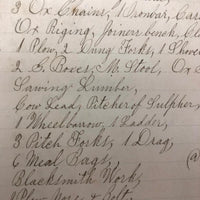 3 Ox Chains, 1 Ironbar, Cas
Ox Riging, joiners bench, Cl
1 Plow, 2 Dung Forks, 1 Shove
2 G. Boxes, M. Stool, Ox
Sawing Lumber,
Cow Lead, Pitcher of Sulpher,
1 Wheelbarrow, 1 Ladder,
3 Pitch Forks, 1 Drag,
6 Meal Bags,
Blacksmith Work,
1 Plow, Nose & Bolt,